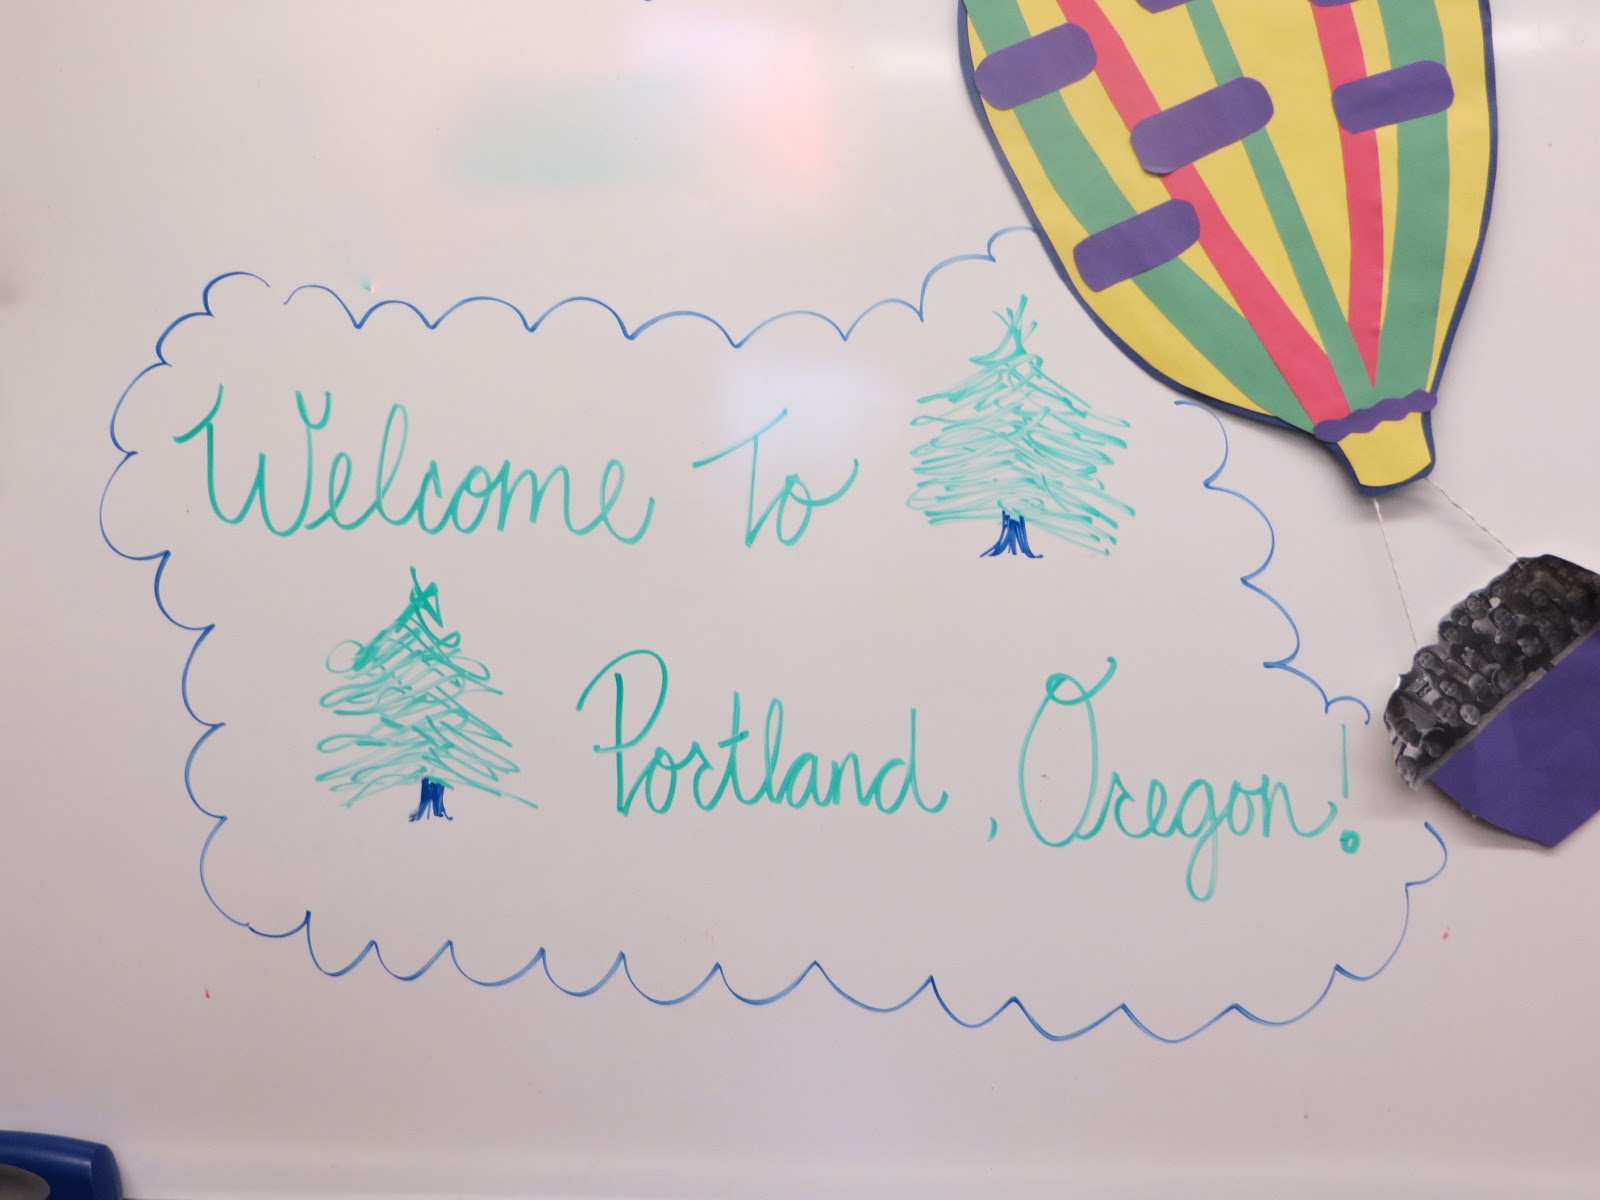 Welcome To
Portland, Oregon!